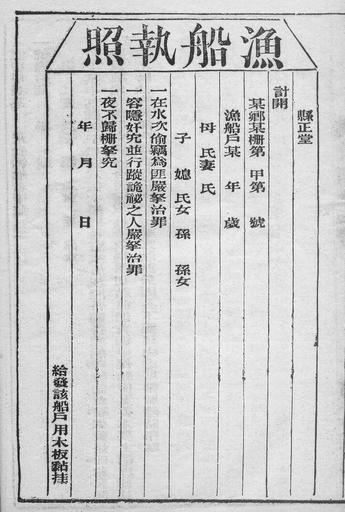 漁船執照
縣正堂
計開
某鄉某柵第　甲第　號
漁船戶某　年　歲
母　氏妻　氏
子　媳　氏女　孫　孫女
一在水次偷竊為匪嚴拏治罪
一容隱奸宄並行蹤詭祕之人嚴拏治罪
一夜不歸柵拏究
年　月　日
給發該船戶用木板黏挂